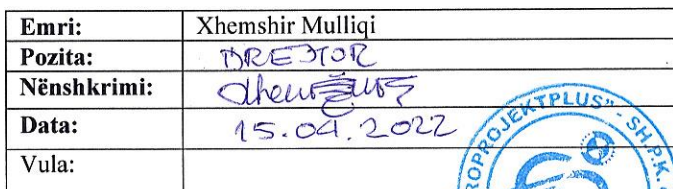 Emri: Xhemshir Mulliqi
Pozita: DREJTOR
Nënshkrimi:
Data: 15.04.2022
Vula:
PROJEKTPLUS" - SH.P.K.